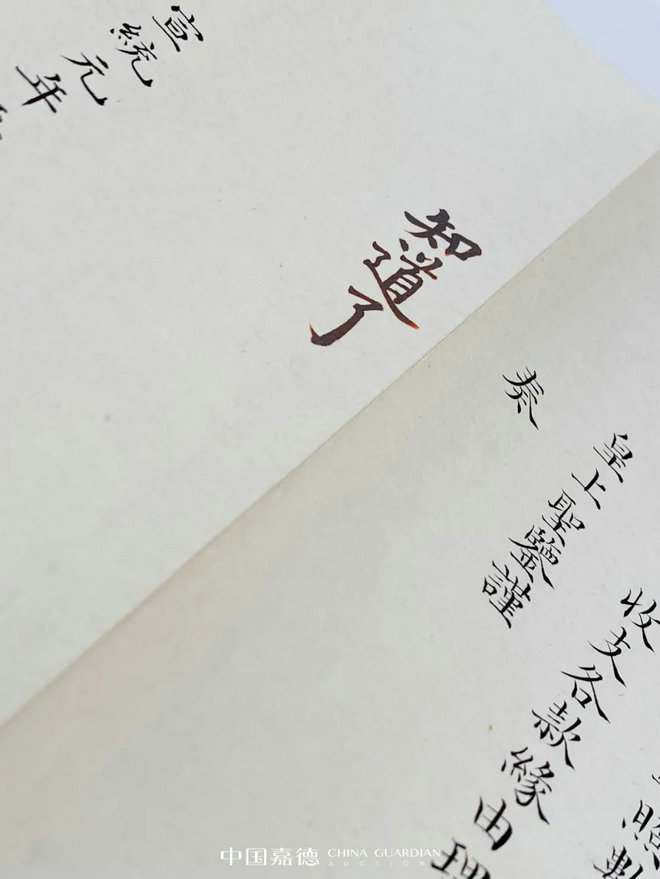 照數
收支各款緣由理
皇上聖鑒謹
奏
知道了
宣統元年
中国嘉德 CHINA GUARDIAN
AUCTION